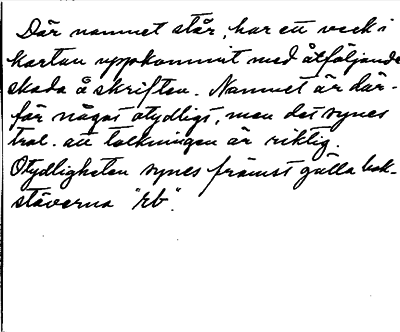 Där namnet står, har ett veck i
kartan uppkommit med åtföljande
skada å skriften. Namnet är där-
för något otydligt, men det synes
trol. att tolkningen är riktig.
Otydligheten synes främst gälla bok-
stäverna "eb".